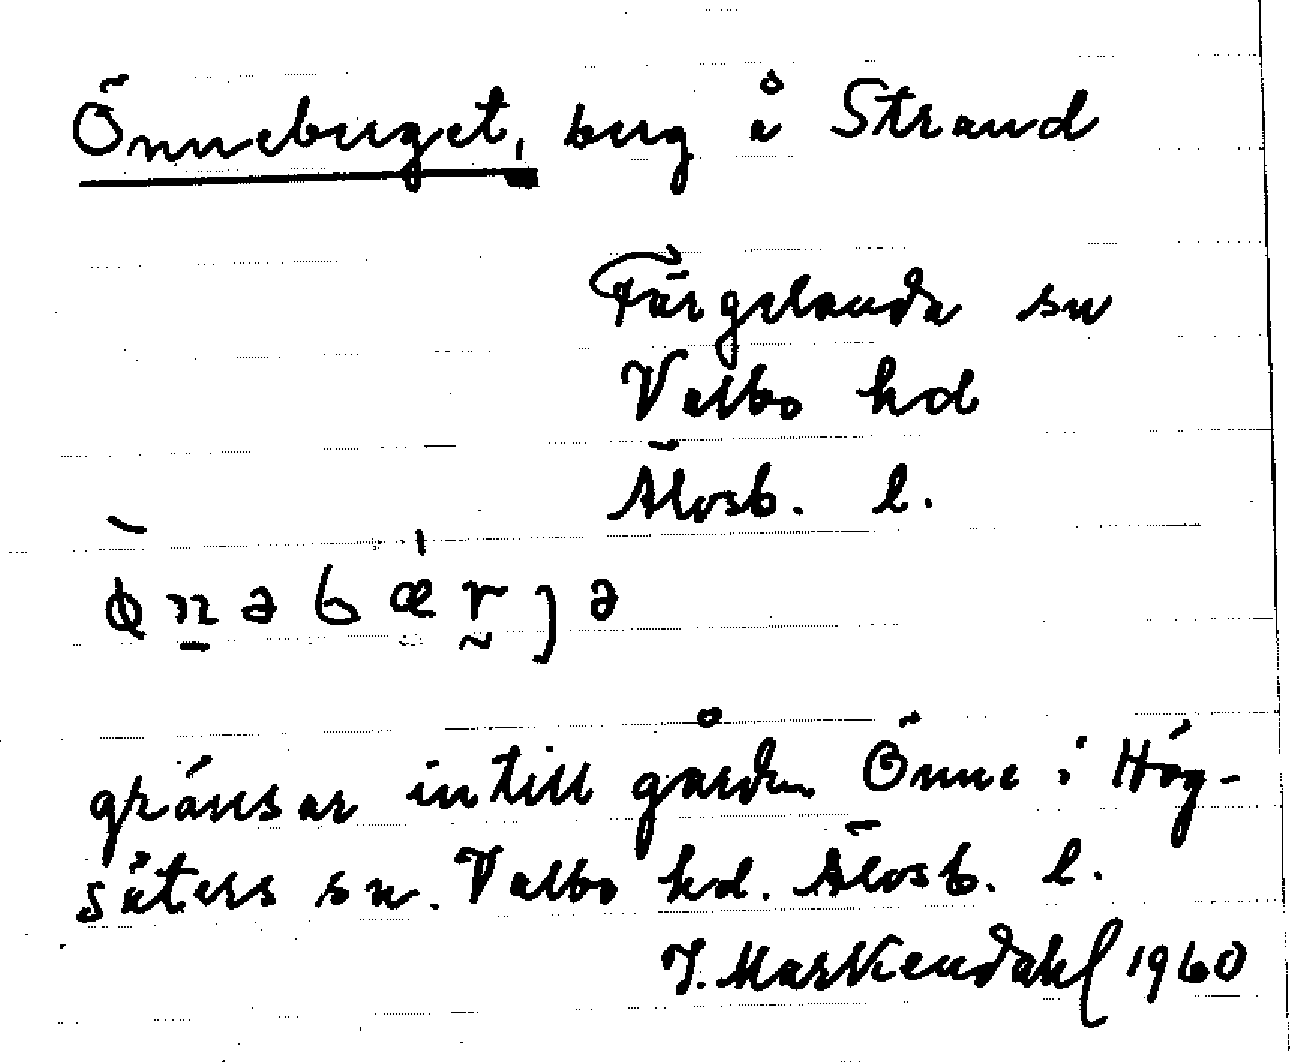 Önneberget, berg å Strand
Färgelanda sn
Valbo hd
Älvsb. l.
ò̀n̲əbæ̍r̰ȷə
gränsar intill gården Önne i Hög-
säters sn. Valbo hd. Älvsb. l.
J. Markendahl 1960